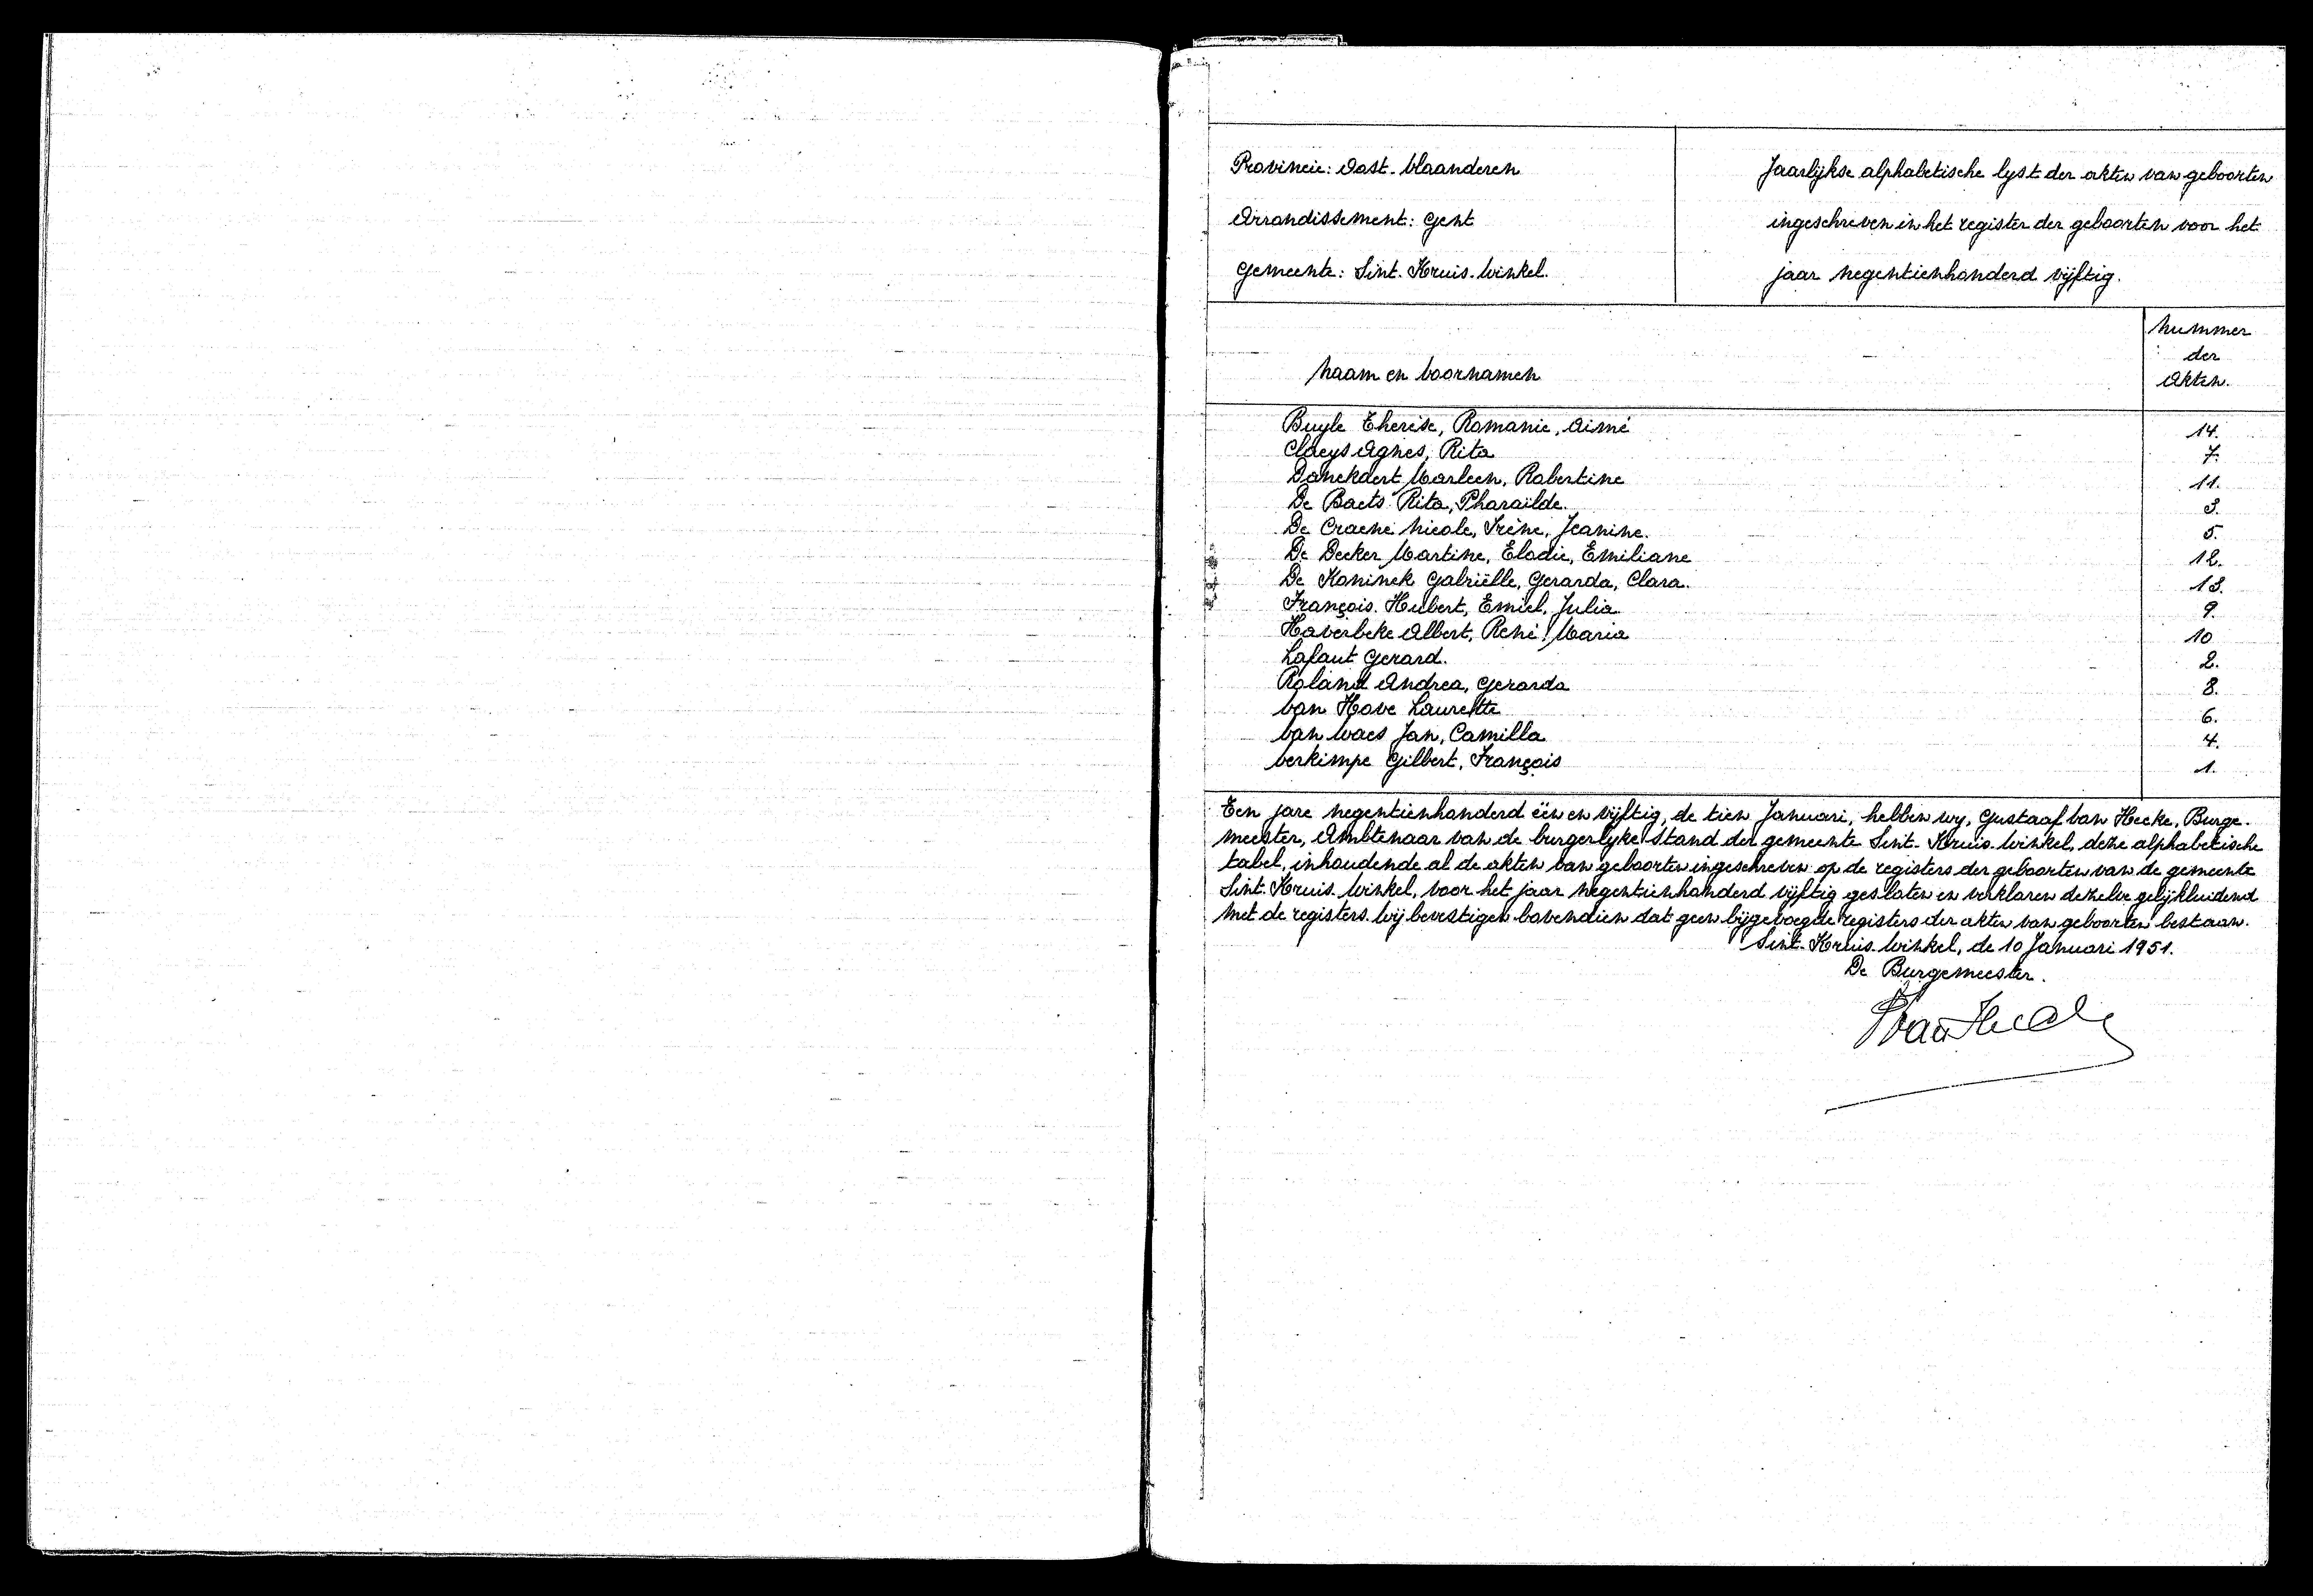 Provincie: Oost-Vlaanderen
Arrondissement: Gent
Gemeente: Sint-Kruis-Winkel.
Jaarlijkse alphabetische lyst der akten van geboorten
ingeschreven in het register der geboorten voor het
jaar negentienhonderd vijftig.
Naam en Voornamen
Nummer
der
Akten.
Buyle Therèse, Romanie, Aimé 14.
Claeys Agnes, Rita 7.
Danckaert Marleen, Robertine 11.
De Baets Rita, Pharaïlde. 3.
De Craene Nicole, Irène, Jeanine. 5.
De Decker Martine, Elodie, Emiliane 12.
De Koninck Gabriëlle, Gerarda, Clara. 13.
François Hubert, Emiel, Julia 9.
Haverbeke Albert, René, Maria 10
Lafaut Gerard. 2.
Roland Andrea, Gerarda 8.
Van Hove Laurette 6.
Van Waes Jan, Camilla 4.
Verkimpe Gilbert, François 1.
Een jare negentienhonderd één en vijftig, de tien Januari, hebben wy, Gustaaf Van Hecke, Burge-
meester, Ambtenaar van de burgerlyke stand der gemeente Sint-Kruis-Winkel, deze alphabetische
tabel, inhoudende al de akten van geboorten ingeschreven op de registers der geboorten van de gemeente
Sint-Kruis-Winkel, voor het jaar negentienhonderd vijftig gesloten en verklaren dezelve gelijkluidend
met de registers. Wij bevestigen bovendien dat geen bijgevoegde registers der akten van geboorten bestaan.
Sint-Kruis-Winkel, de 10 Januari 1951.
De Burgemeester.